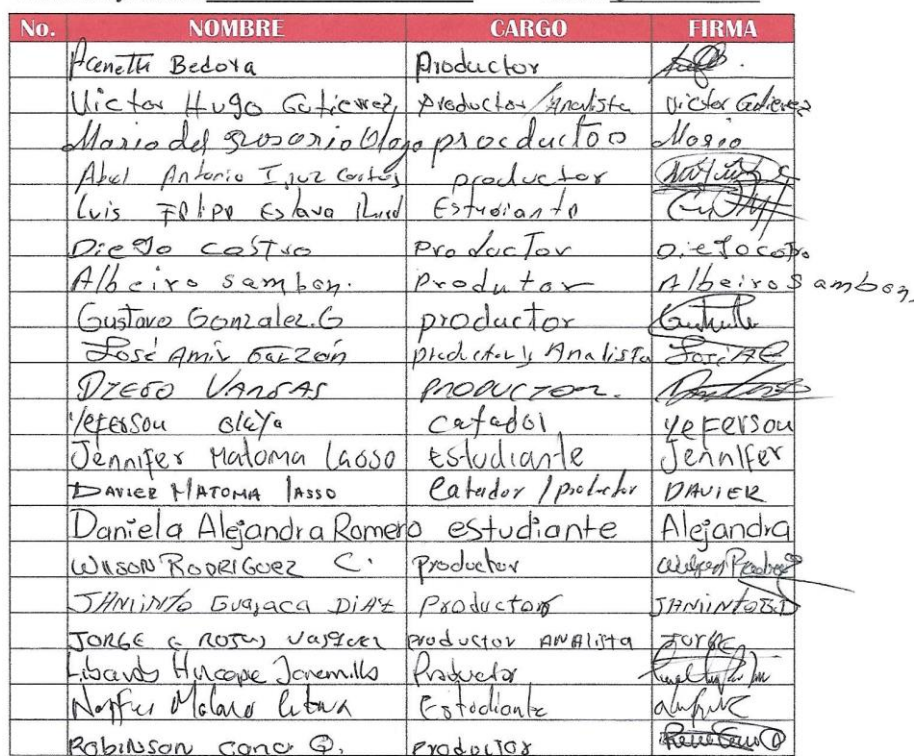 No. NOMBRE CARGO FIRMA
Bedoya Productor
Victor Hugo Gutierrez, Productor/Analista Victor Gutierrez
Maria del Rosario productoo
Abel Antonio Cortes productor
Luis Estudiante
Diego castro Productor Diego castro
Albeiro sambon. Produtor Albeiro Sambon,
Gustavo Gonzalez.G productor
José Amir Garzón productor y Analista José
DIEGO VARGAS PRODUCTOR.
Yeferson olaya catador Yeferson
Jennifer Matoma Lasso Estudiante Jennifer
DAVIER MATOMA LASSO Catador / productor DAVIER
Daniela Alejandra Romero estudiante Alejandra
WILSON RODRIGUEZ C. Productor
JAMINTO DIAZ Productor
JORGE ROJAS productor ANAlista JORGE
Jaramillo Productor
Estudiante
ROBINSON cano Q. productor